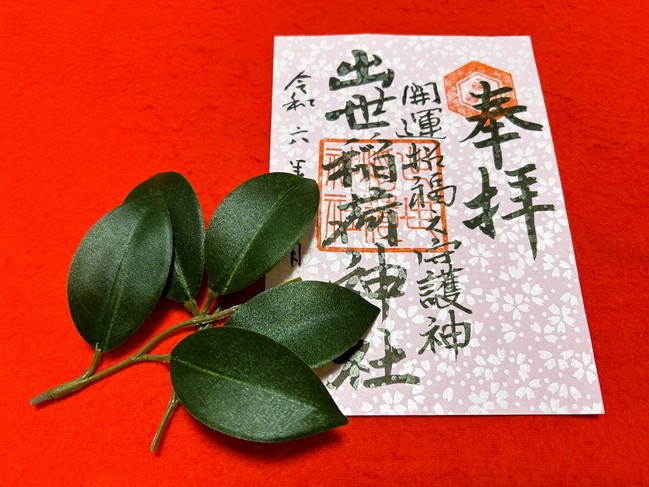 奉拝
開運招福之守護神
出世稲荷神社
令和六年 月